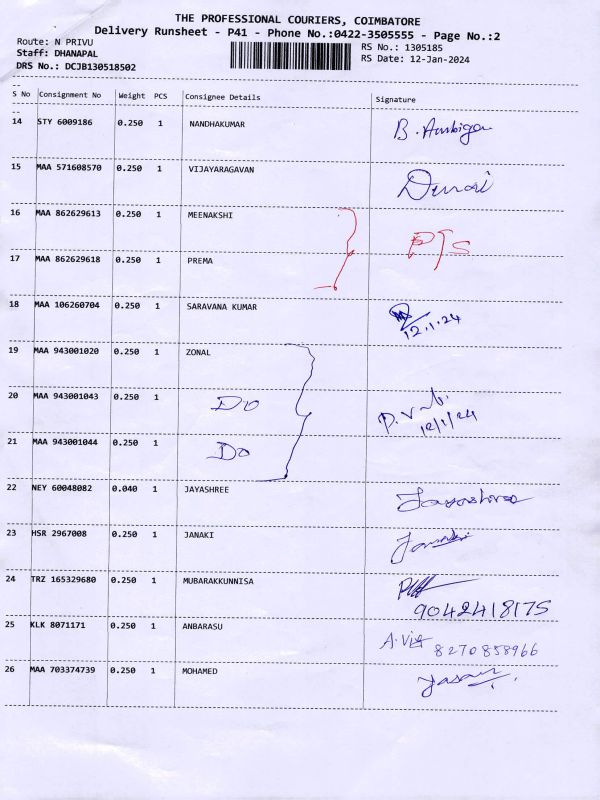 THE PROFESSIONAL COURIERS, COIMBATORE
Delivery Runsheet - P41 - Phone No.:0422-3505555 - Page No.:2
Route: N PRIVU
RS No.: 1305185
Staff: DHANAPAL
RS Date: 12-Jan-2024
DRS No.: DCJB130518502
S No Consignment No Weight PCS Consignee Details Signature
14 STY 6009186 0.250 1 NANDHAKUMAR B.
15 MAA 571608570 0.250 1 VIJAYARAGAVAN
16 MAA 862629613 0.250 1 MEENAKSHI
17 MAA 862629618 0.250 1 PREMA
18 MAA 106260704 0.250 1 SARAVANA KUMAR
12.1.24
19 MAA 943001020 0.250 1 ZONAL
20 MAA 943001043 0.250 1 DO
12/1/24
21 MAA 943001044 0.250 1 DO
22 NEY 60048082 0.040 1 JAYASHREE Jayashree
23 HSR 2967008 0.250 1 JANAKI Janaki
24 TRZ 165329680 0.250 1 MUBARAKKUNNISA
9042418175
25 KLK 8071171 0.250 1 ANBARASU 8270858966
26 MAA 703374739 0.250 1 MOHAMED